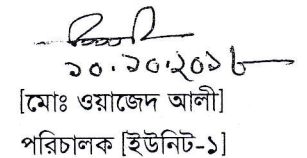 ১০.১০.২০১৮
[মোঃ ওয়াজেদ আলী]
পরিচালক [ইউনিট-১]